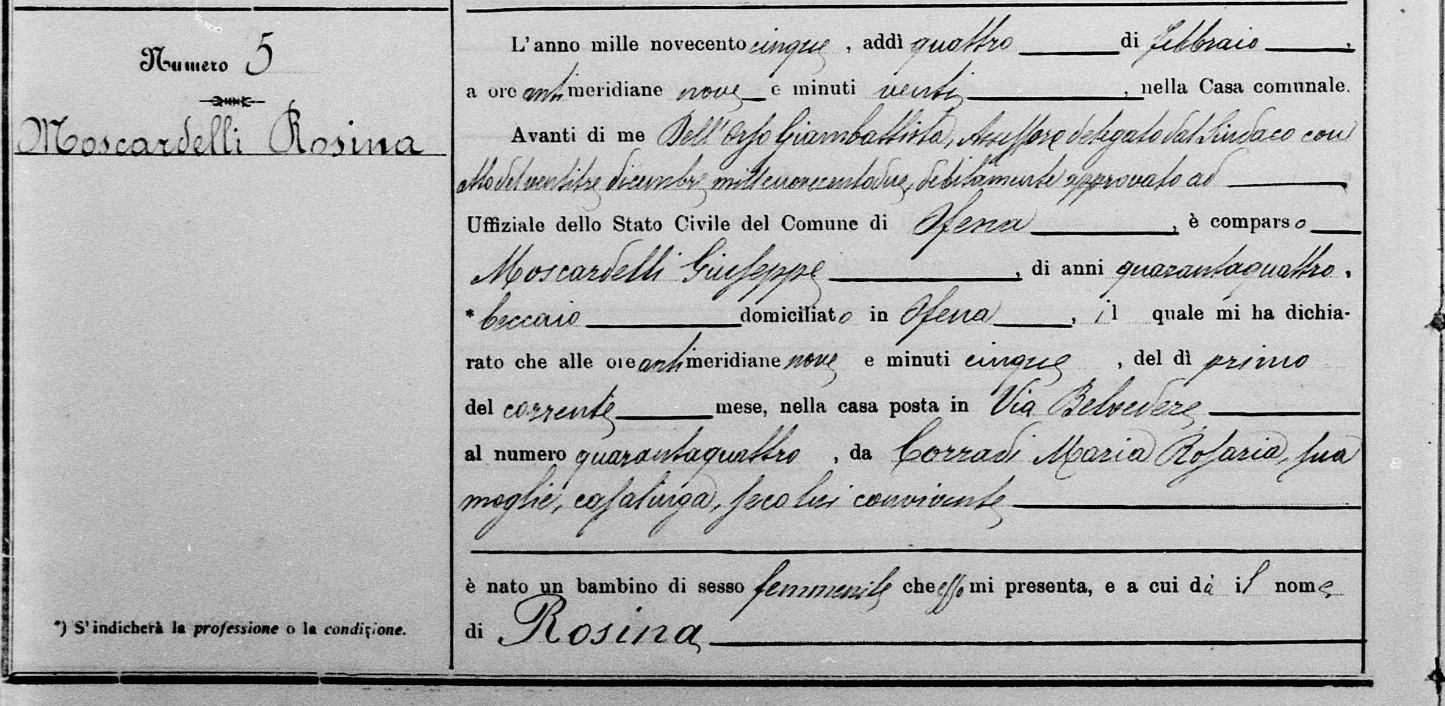 Numero 5
Moscardelli Rosina
*) S'indicherà la professione o la condizione.
L'anno mille novecento cinque, addì quattro di febbraio,
a ore antimeridiane nove e minuti venti, nella Casa comunale.
Avanti di me Dell'Orso Giambattista, Assessore delegato dal Sindaco con
atto del ventitre dicembre millenovecentodue, debitamente approvato ad
Uffiziale dello Stato Civile del Comune di Ofena, è comparso
Moscardelli Giuseppe, di anni quarantaquattro,
* beccaio domiciliato in Ofena, il quale mi ha dichia-
rato che alle ore antimeridiane nove e minuti cinque, del dì primo
del corrente mese, nella casa posta in Via Belvedere
al numero quarantaquattro, da Corradi Maria Rosaria, sua
moglie, casalinga, seco lui convivente
è nato un bambino di sesso femmenile che esso mi presenta, e a cui dà il nome
di Rosina